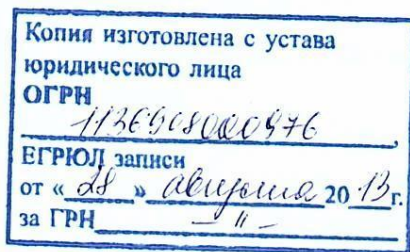 Копия изготовлена с устава
юридического лица
ОГРН
1136908000976,
ЕГРЮЛ записи
от « 28 » августа 20 13 г.
за ГРН – " –